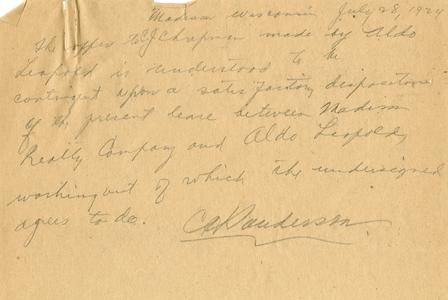 Madison Wisconsin July 28, 1924
The offer to CJ Chapman made by Aldo
Leopold is understood to be
contingent upon a satisfactory disposition
of the present lease between Madison
Realty Company and Aldo Leopold,
working out of which the undersigned
agrees to do.